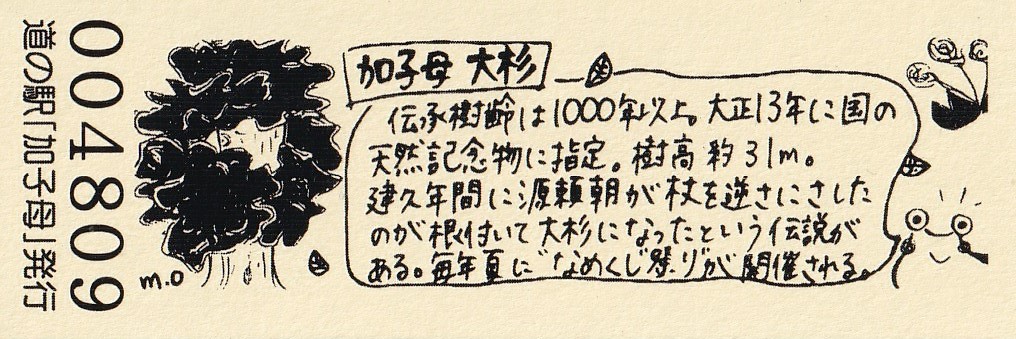 004809
道の駅「加子母」発行
加子母 大杉
伝承樹齢は1000年以上。大正13年に国の
天然記念物に指定。樹高約31m。
建久年間に源頼朝が杖を逆さにさした
のが根付いて大杉になったという伝説が
ある。毎年夏に"なめくじ祭り"が開催される。
m.o